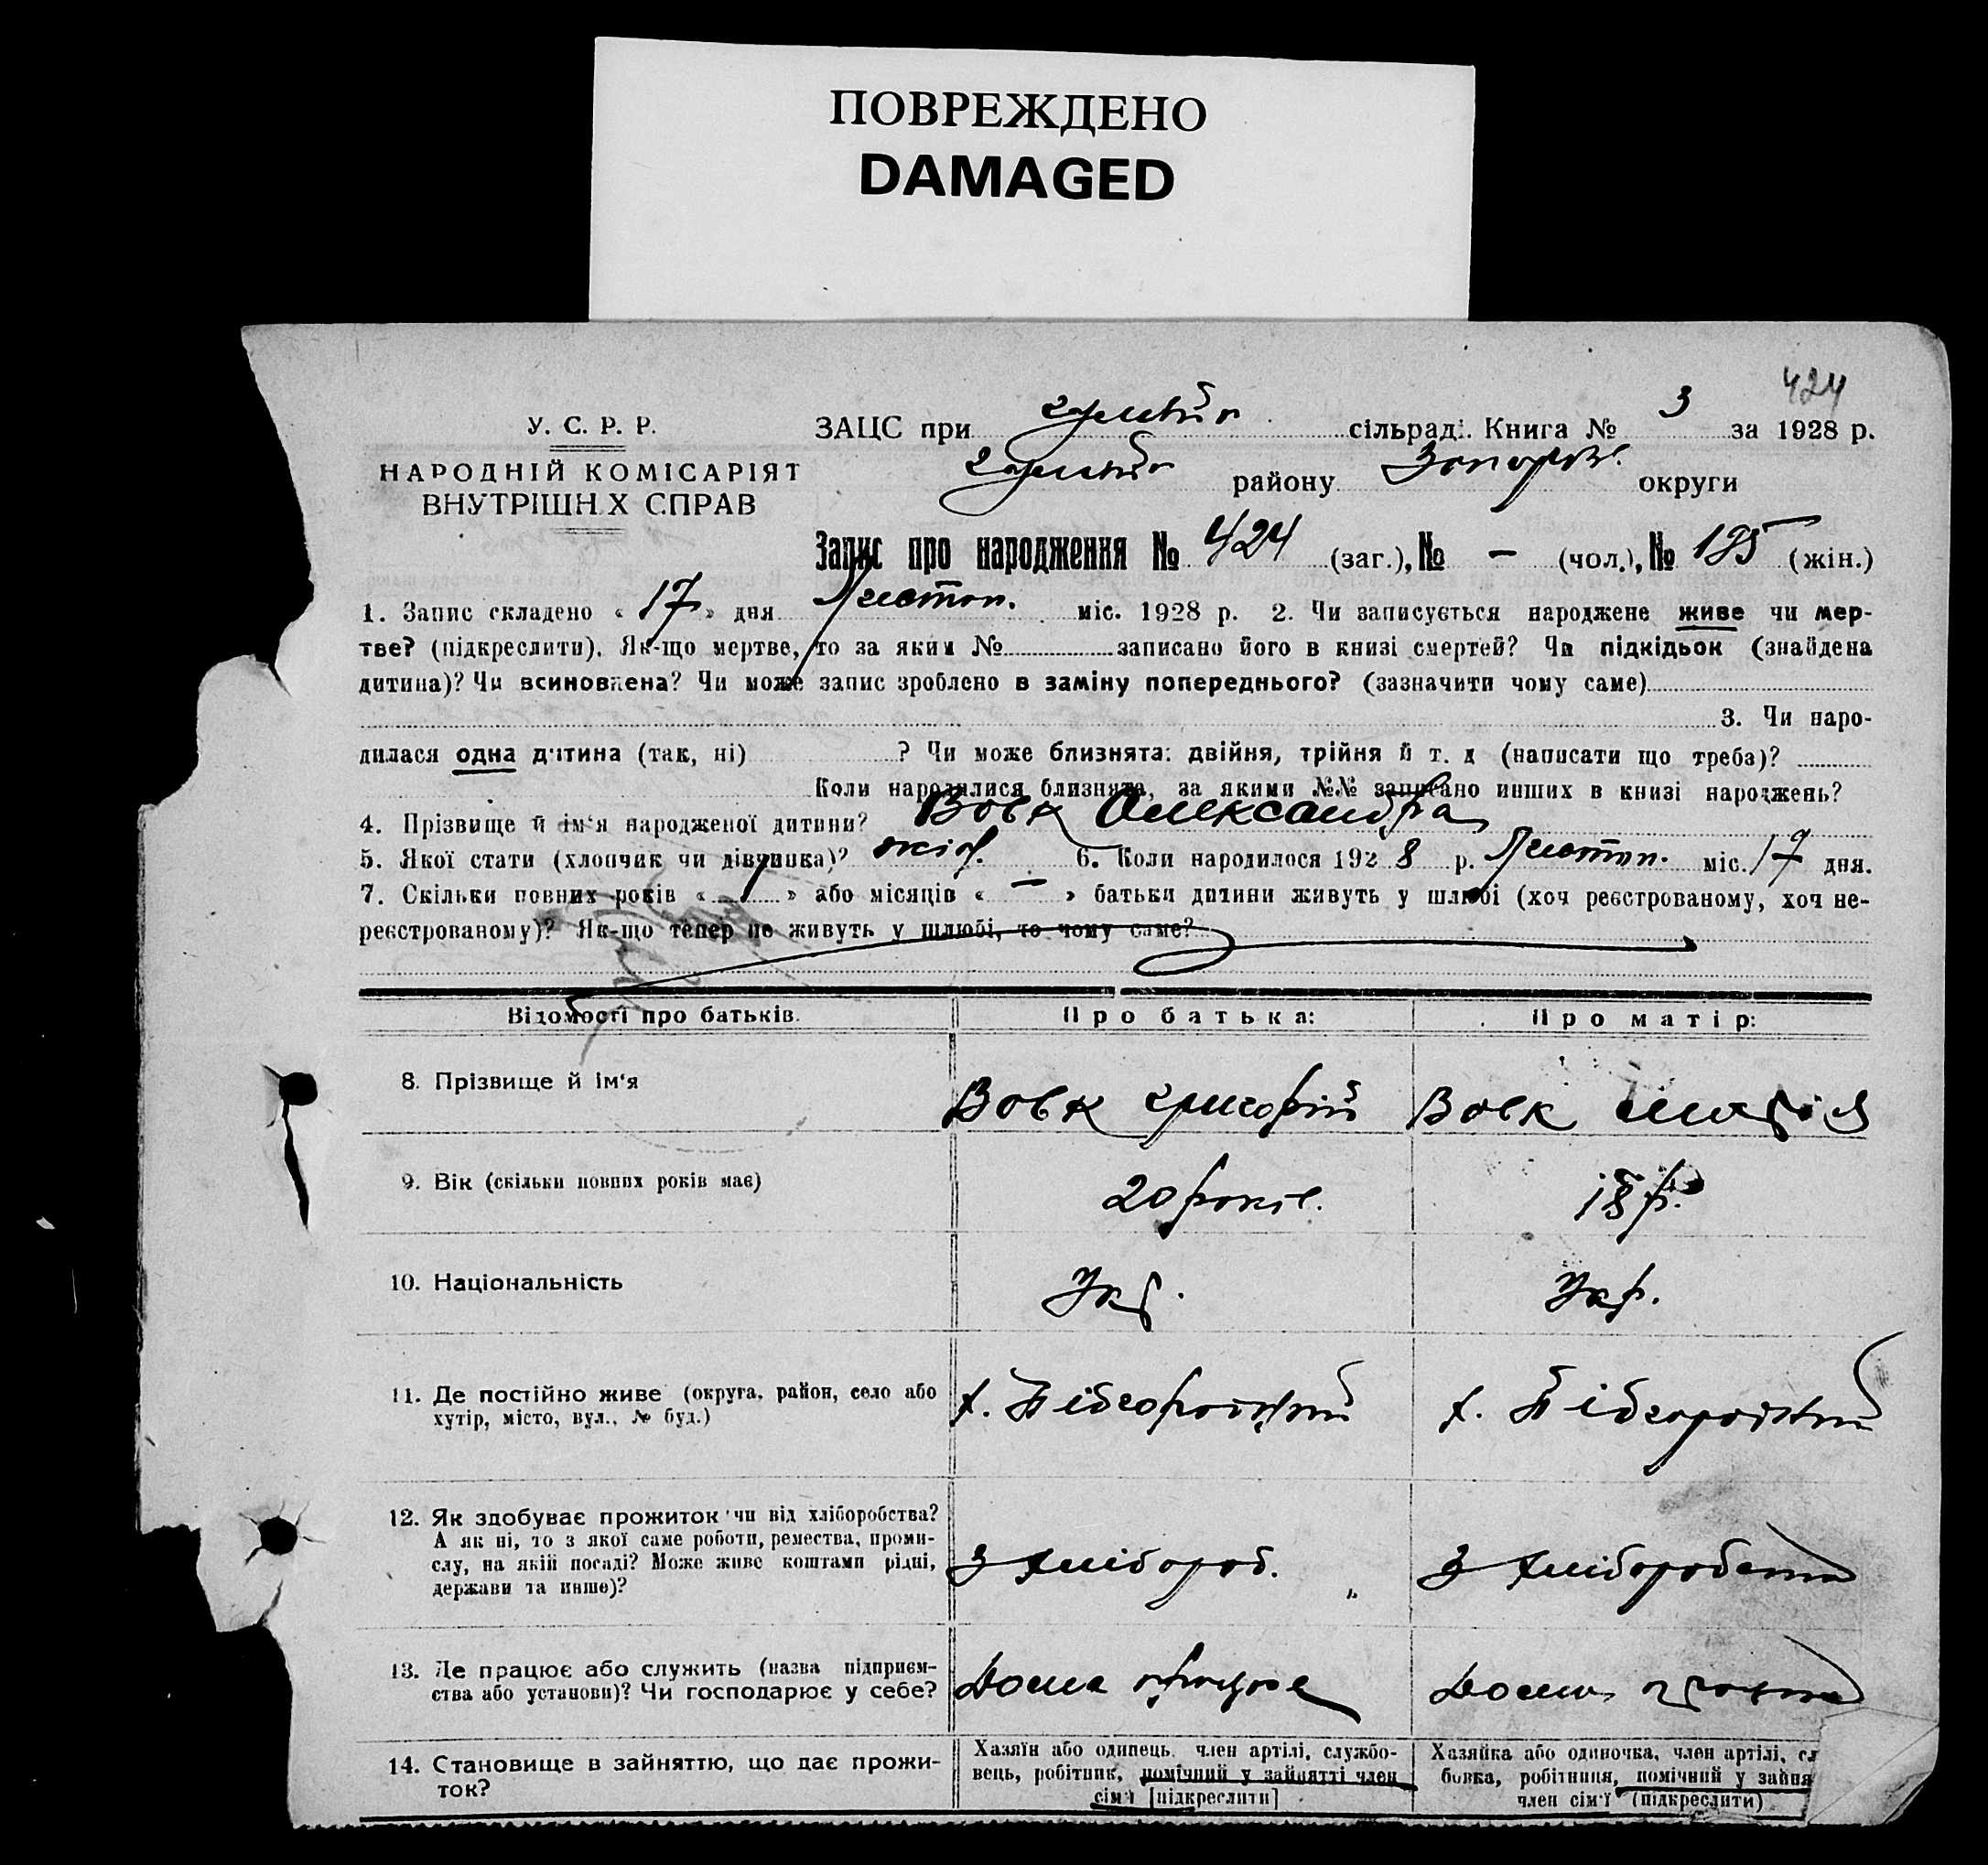 ПОВРЕЖДЕНО
DAMAGED
424
У. С. Р. Р.
НАРОДНІЙ КОМІСАРІЯТ
ВНУТРІШН.Х СПРАВ
ЗАЦС при сільраді. Книга № 3 за 1928 р.
району Запорізь. округи
Запис про народження № 424 (заг.), № — (чол.), № 195 (жін.)
1. Запис складено « 17 » дня Листоп. міс. 1928 р. 2. Чи записується народжене живе чи мер-
тве? (підкреслити). Як-що мертве, то за яким № записано його в книзі смертей? Чи підкідьок (знайдена
дитина)? Чи всиновлена? Чи може запис зроблено в заміну попереднього? (зазначити чому саме)
3. Чи наро-
дилася одна дитина (так, ні) ? Чи може близнята: двійня, трійня й т. д (написати що треба)?
Коли народилися близнята, за якими №№ записано инших в книзі народжень?
4. Прізвище й ім'я народженої дитини? Вовк Олександра
5. Якої стати (хлопчик чи дівчинка)? жіноч. 6. Коли народилося 1928 р. Листоп. міс. 17 дня.
7. Скільки повних років « 1 » або місяців « — » батьки дитини живуть у шлюбі (хоч реєстрованому, хоч не-
реєстрованому)? Як-що тепер не живуть у шлюбі, то чому саме?
Відомості про батьків. Про батька: Про матір:
8. Прізвище й ім'я Вовк Григорій Вовк Марія
9. Вік (скільки повних років має) 20 років. 18 р.
10. Національність Укр. Укр.
11. Де постійно живе (округа, район, село або
хутір, місто, вул., № буд.) х. Підгородній х. Підгородній
12. Як здобуває прожиток чи від хліборобства?
А як ні, то з якої саме роботи, ремества, проми-
слу, на якій посаді? Може живе коштами рідні,
держави та инше)? З хлібороб. З хліборобства
13. Де працює або служить (назва підприєм-
ства або установи)? Чи господарює у себе? Дома працює Дома працює
14. Становище в зайняттю, що дає прожи-
ток?
Хазяїн або одинець, член артілі, службо-
вець, робітник, помічний у зайнятті член
сім'ї [підкреслити]
Хазяйка або одиночка, член артілі, сл
бовка, робітниця, помічний у зайня
член сім'ї (підкреслити)